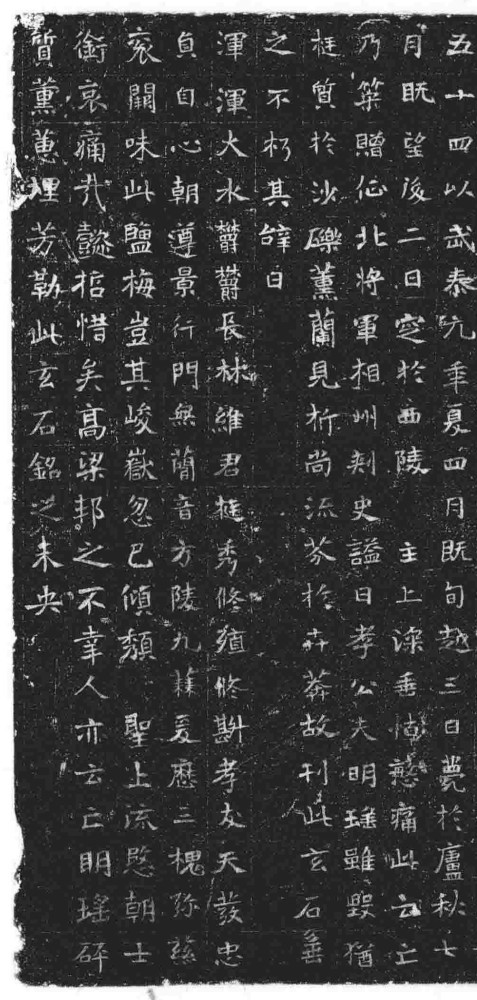 五十四以武泰元年夏四月既旬越三日薨於廬秋七
月既望後二日窆於西陵 主上深垂悼愍痛此云亡
乃策贈征北將軍相州刺史謚曰孝公夫明瑤雖毀猶
挺質於沙礫薰蘭見析尚流芬於卉莽故刊此玄石垂
之不朽其辭曰
渾渾大水欝欝長林維君挺秀脩殖脩斟孝友天發忠
貞自心朝遵景行門無蕳音方陵九棘爰歷三槐弥兹
衮闕味此鹽梅豈其峻嶽忽已傾頹 聖上流愍朝士
銜哀痛哉懿哲惜矣高梁邦之不幸人亦云亡明瑤碎
質薰蕙埋芳勒此玄石銘之未央